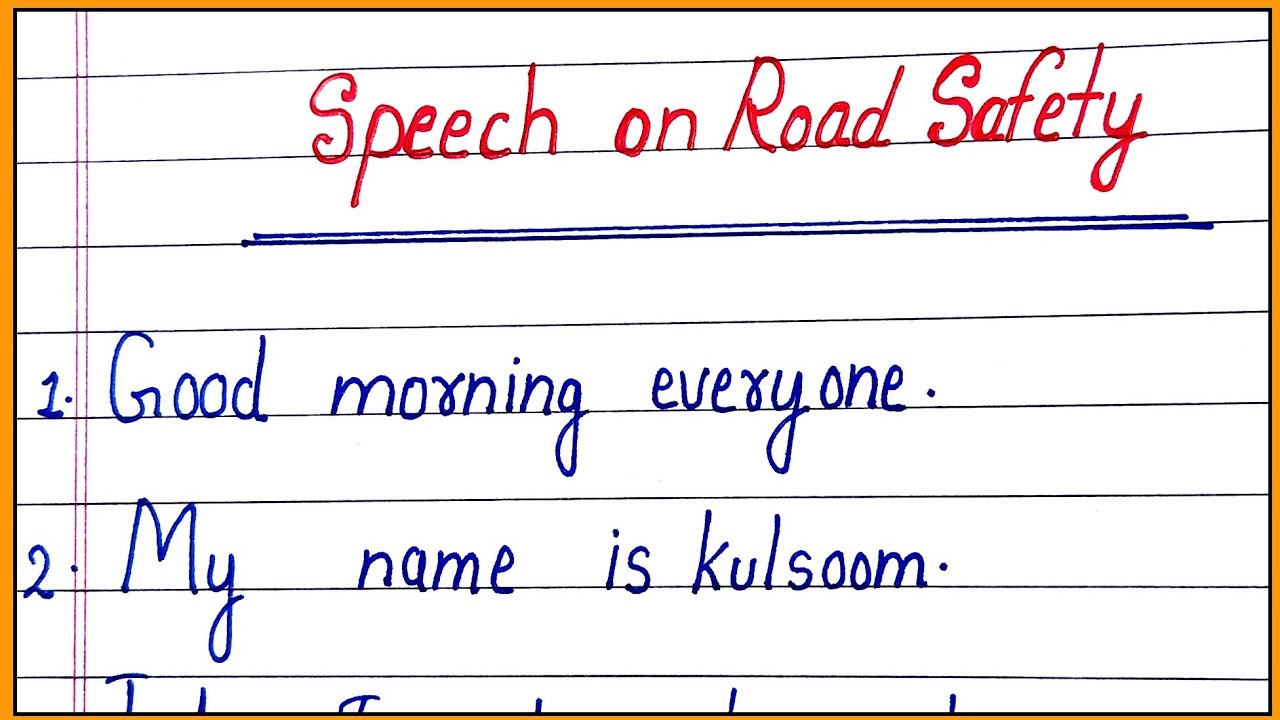 Speech on Road Safety
1. Good morning everyone.
2. My name is kulsoom.